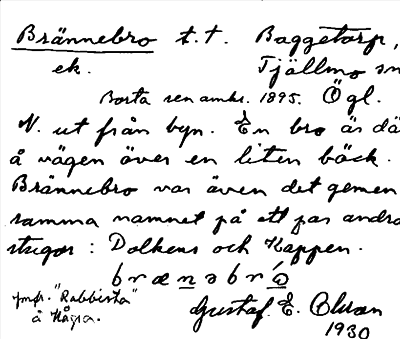 Brännebro t.t. Baggetorp,
ek. Tjällmo sn
Borta sen omkr. 1895. Ögl.
N. ut från byn. En bro är dä
å vägen över en liten bäck.
Brännebro var även det gemen
samma namnet på ett par andra
stugor: Dalkens och Kappen.
brænəbrω
Jmfr. "Rabbista"
å Några. Gustaf E. Olson
1930